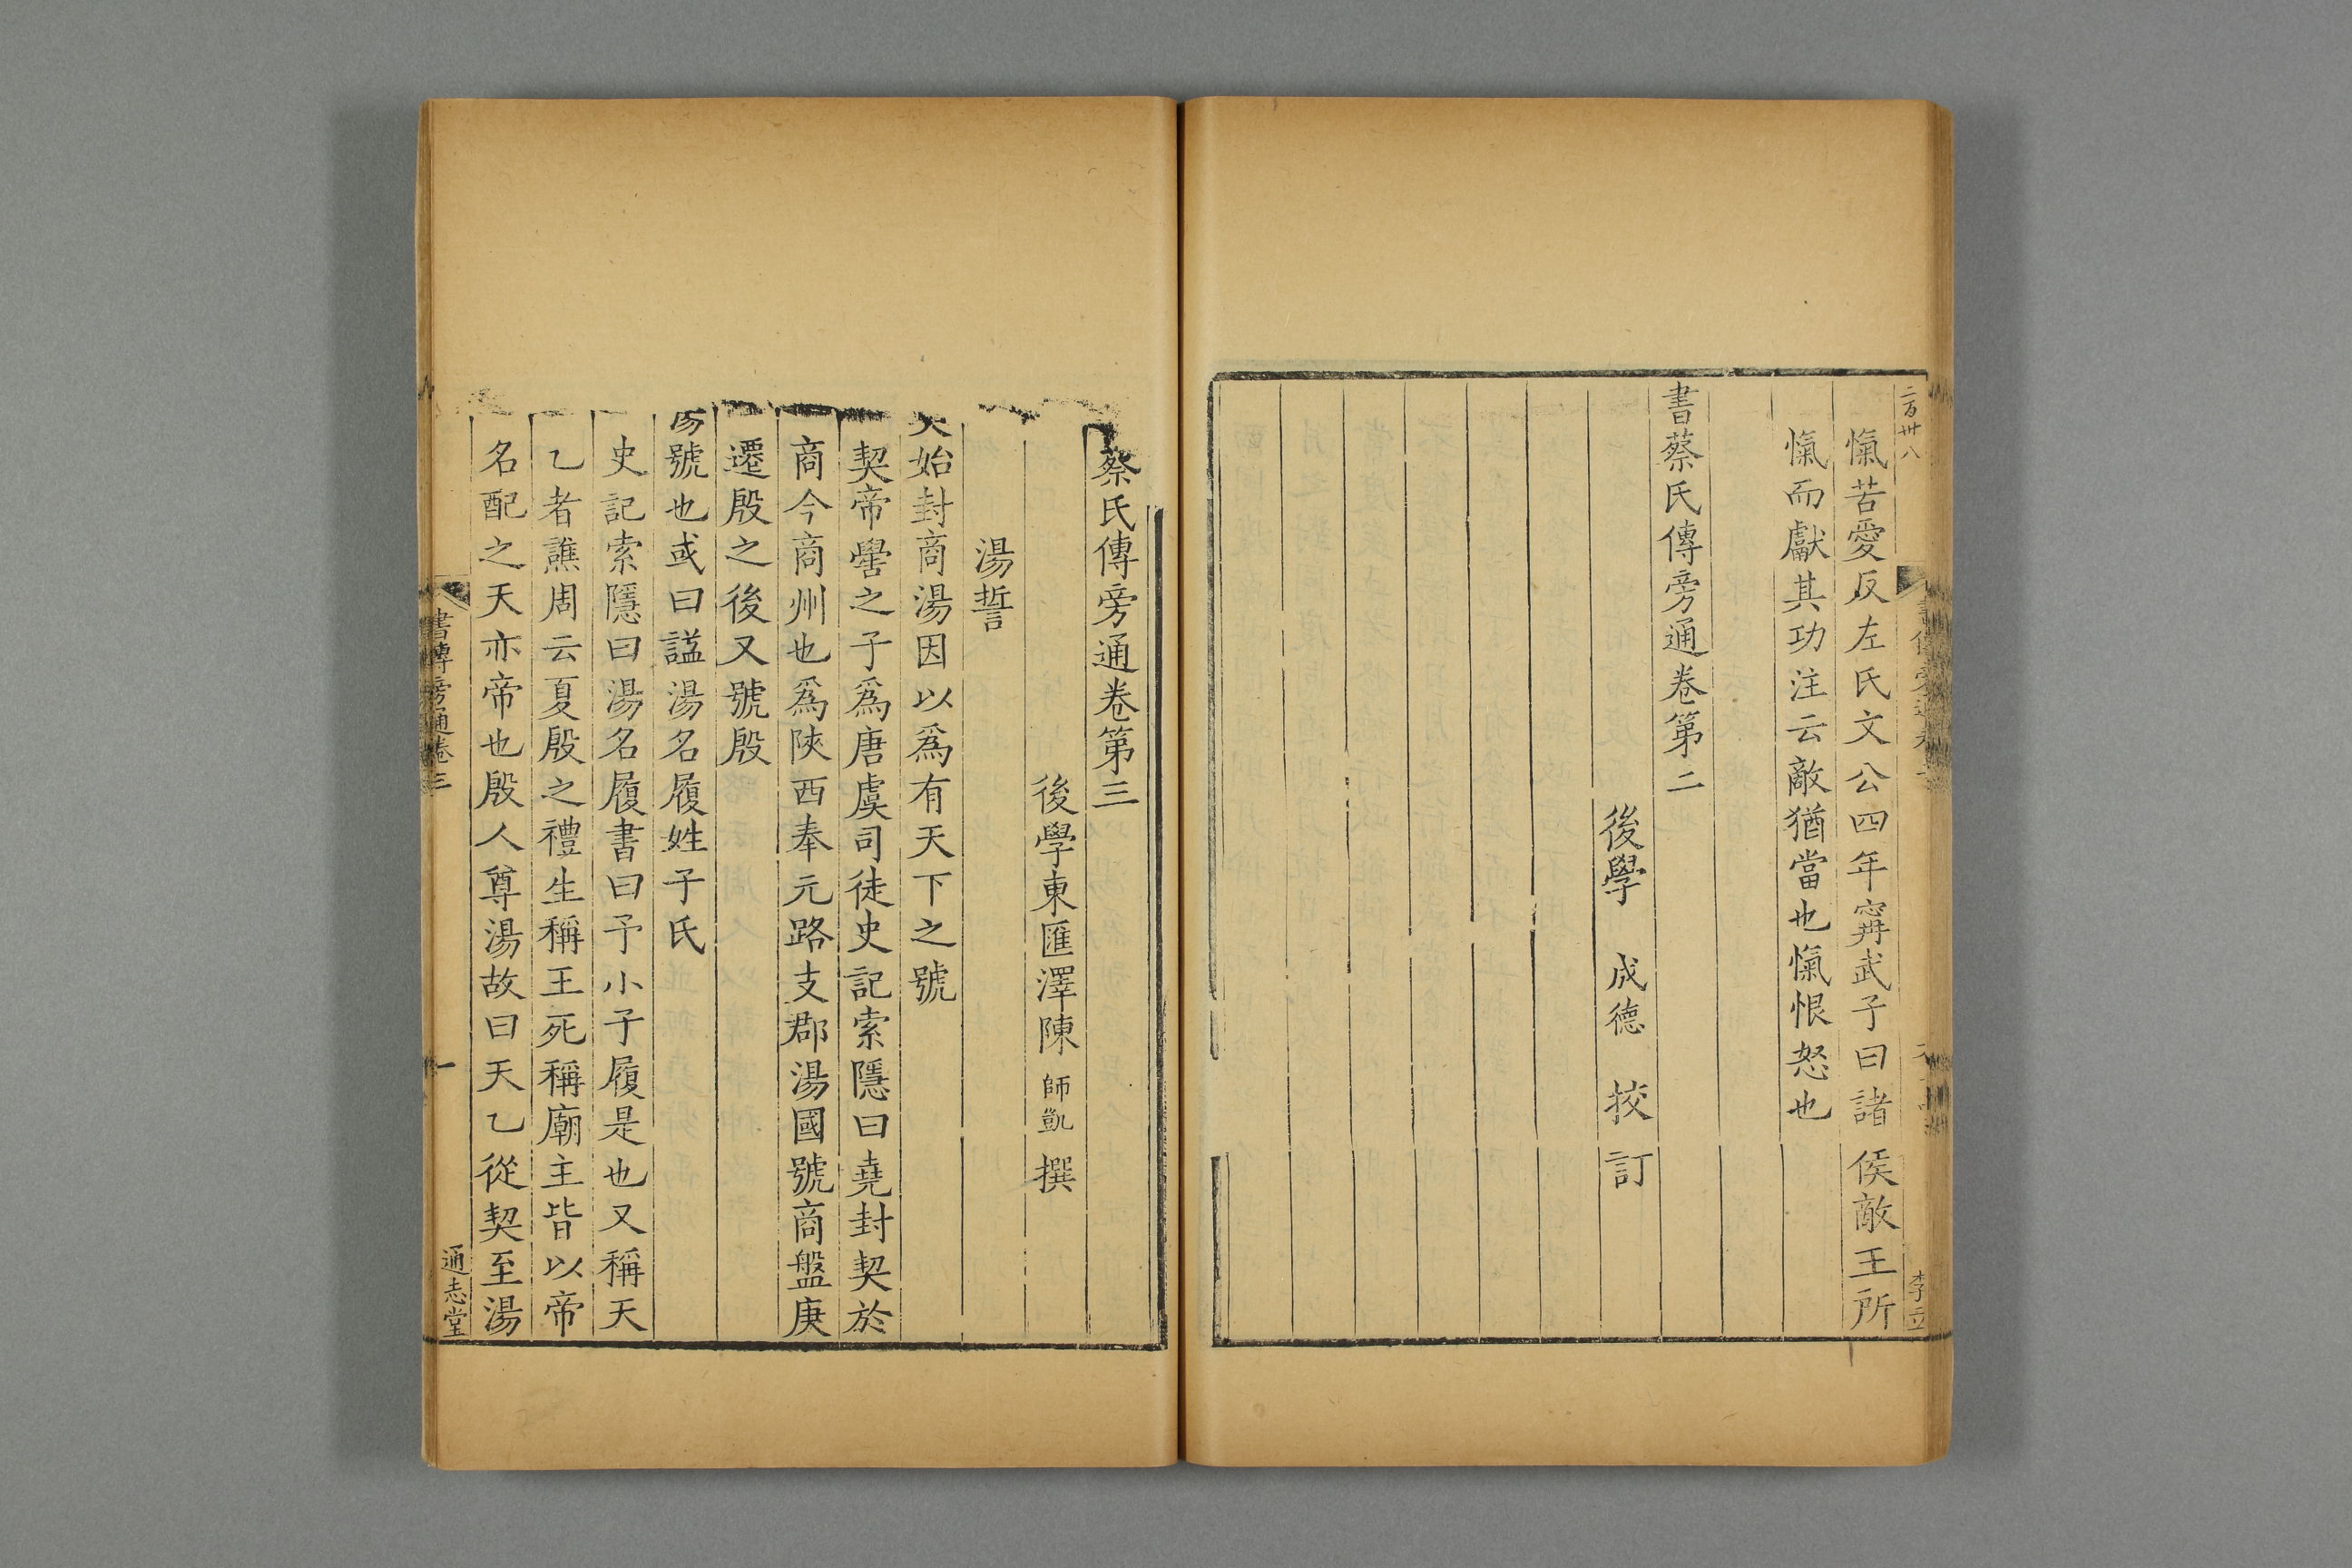 二百卅八
愾苦愛反左氏文公四年寗武子曰諸侯敵王所
愾而獻其功注云敵猶當也愾恨怒也
書蔡氏傳旁通卷第二
後學 成德 挍訂
李立
蔡氏傳旁通卷第三
後學東匯澤陳師凱撰
湯誓
始封商湯因以爲有天下之號
契帝嚳之子爲唐虞司徒史記索隱曰堯封契於
商今商州也爲陝西奉元路支郡湯國號商盤庚
遷殷之後又號殷
湯號也或曰諡湯名履姓子氏
史記索隱曰湯名履書曰予小子履是也又稱天
乙者譙周云夏殷之禮生稱王死稱廟主皆以帝
名配之天亦帝也殷人尊湯故曰天乙從契至湯
書傳旁通卷三
一
通志堂